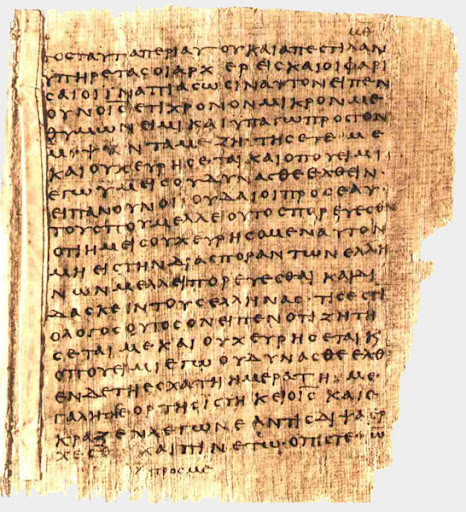 ΜΘ
ΤΟϹΤΑΥΤΑΠΕΡΙΑΥΤΟΥΚΑΙΑΠΕϹΤΙΛΑΝ
ΥΠΗΡΕΤΑϹΟΙΑΡΧΙΕΡΕΙϹΚΑΙΟΙΦΑΡΙ
ϹΑΙΟΙΙΝΑΠΙΑϹΩϹΙΝΑΥΤΟΝΕΙΠΕΝ
ΟΥΝΟΙϹΕΤΙΧΡΟΝΟΝΜΙΚΡΟΝΜΕ
ΘΥΜΩΝΕΙΜΙΚΑΙΥΠΑΓΩΠΡΟϹΤΟΝ
ΨΑΝΤΑΜΕΖΗΤΗϹΕΤΕΜΕ
ΚΑΙΟΥΧΕΥΡΗϹΕΤΑΙΚΑΙΟΠΟΥΕΙΜΙ
ΕΓΩΥΜΕΙϹΟΥΔΥΝΑϹΘΕΕΛΘΕΙΝ
ΕΙΠΑΝΟΥΝΟΙΙΟΥΔΑΙΟΙΠΡΟϹΕΑΥ
ΤΟΥϹΠΟΥΜΕΛΛΕΙΟΥΤΟϹΠΟΡΕΥΕϹΘΑΙ
ΟΤΙΗΜΕΙϹΟΥΧΕΥΡΗϹΟΜΕΝΑΥΤΟΝ
ΜΗΕΙϹΤΗΝΔΙΑϹΠΟΡΑΝΤΩΝΕΛΛΗ
ΝΩΝΜΕΛΛΕΙΠΟΡΕΥΕϹΘΑΙΚΑΙΔΙ
ΔΑϹΚΕΙΝΤΟΥϹΕΛΛΗΝΑϹ·ΤΙϹΕϹΤΙ
ΟΛΟΓΟϹΟΥΤΟϹΟΝΕΙΠΕΝΟΤΙΖΗΤΗ
ϹΕΤΑΙΜΕΚΑΙΟΥΧΕΥΡΗϹΕΤΑΙΚ
ΟΠΟΥΕΙΜΙΕΓΩΟΥΔΥΝΑϹΘΕΕΛΘ
ΕΝΔΕΤΗΕϹΧΑΤΗΗΜΕΡΑΤΗΜΕ
ΓΑΛΗΤΗϹΕΟΡΤΗϹΙϹΤΗΚΕΙΟΙϹΚΑΙΕ
ΚΡΑΖΕΝΛΕΓΩΝΕΑΝΤΙϹΔΙΨΑΕΡ
ΧΕϹΘΩΚΑΙΠΙΝΕΤΩ·ΟΠΙϹΤΕΥΩ
ΠΡΟϹΜΕ